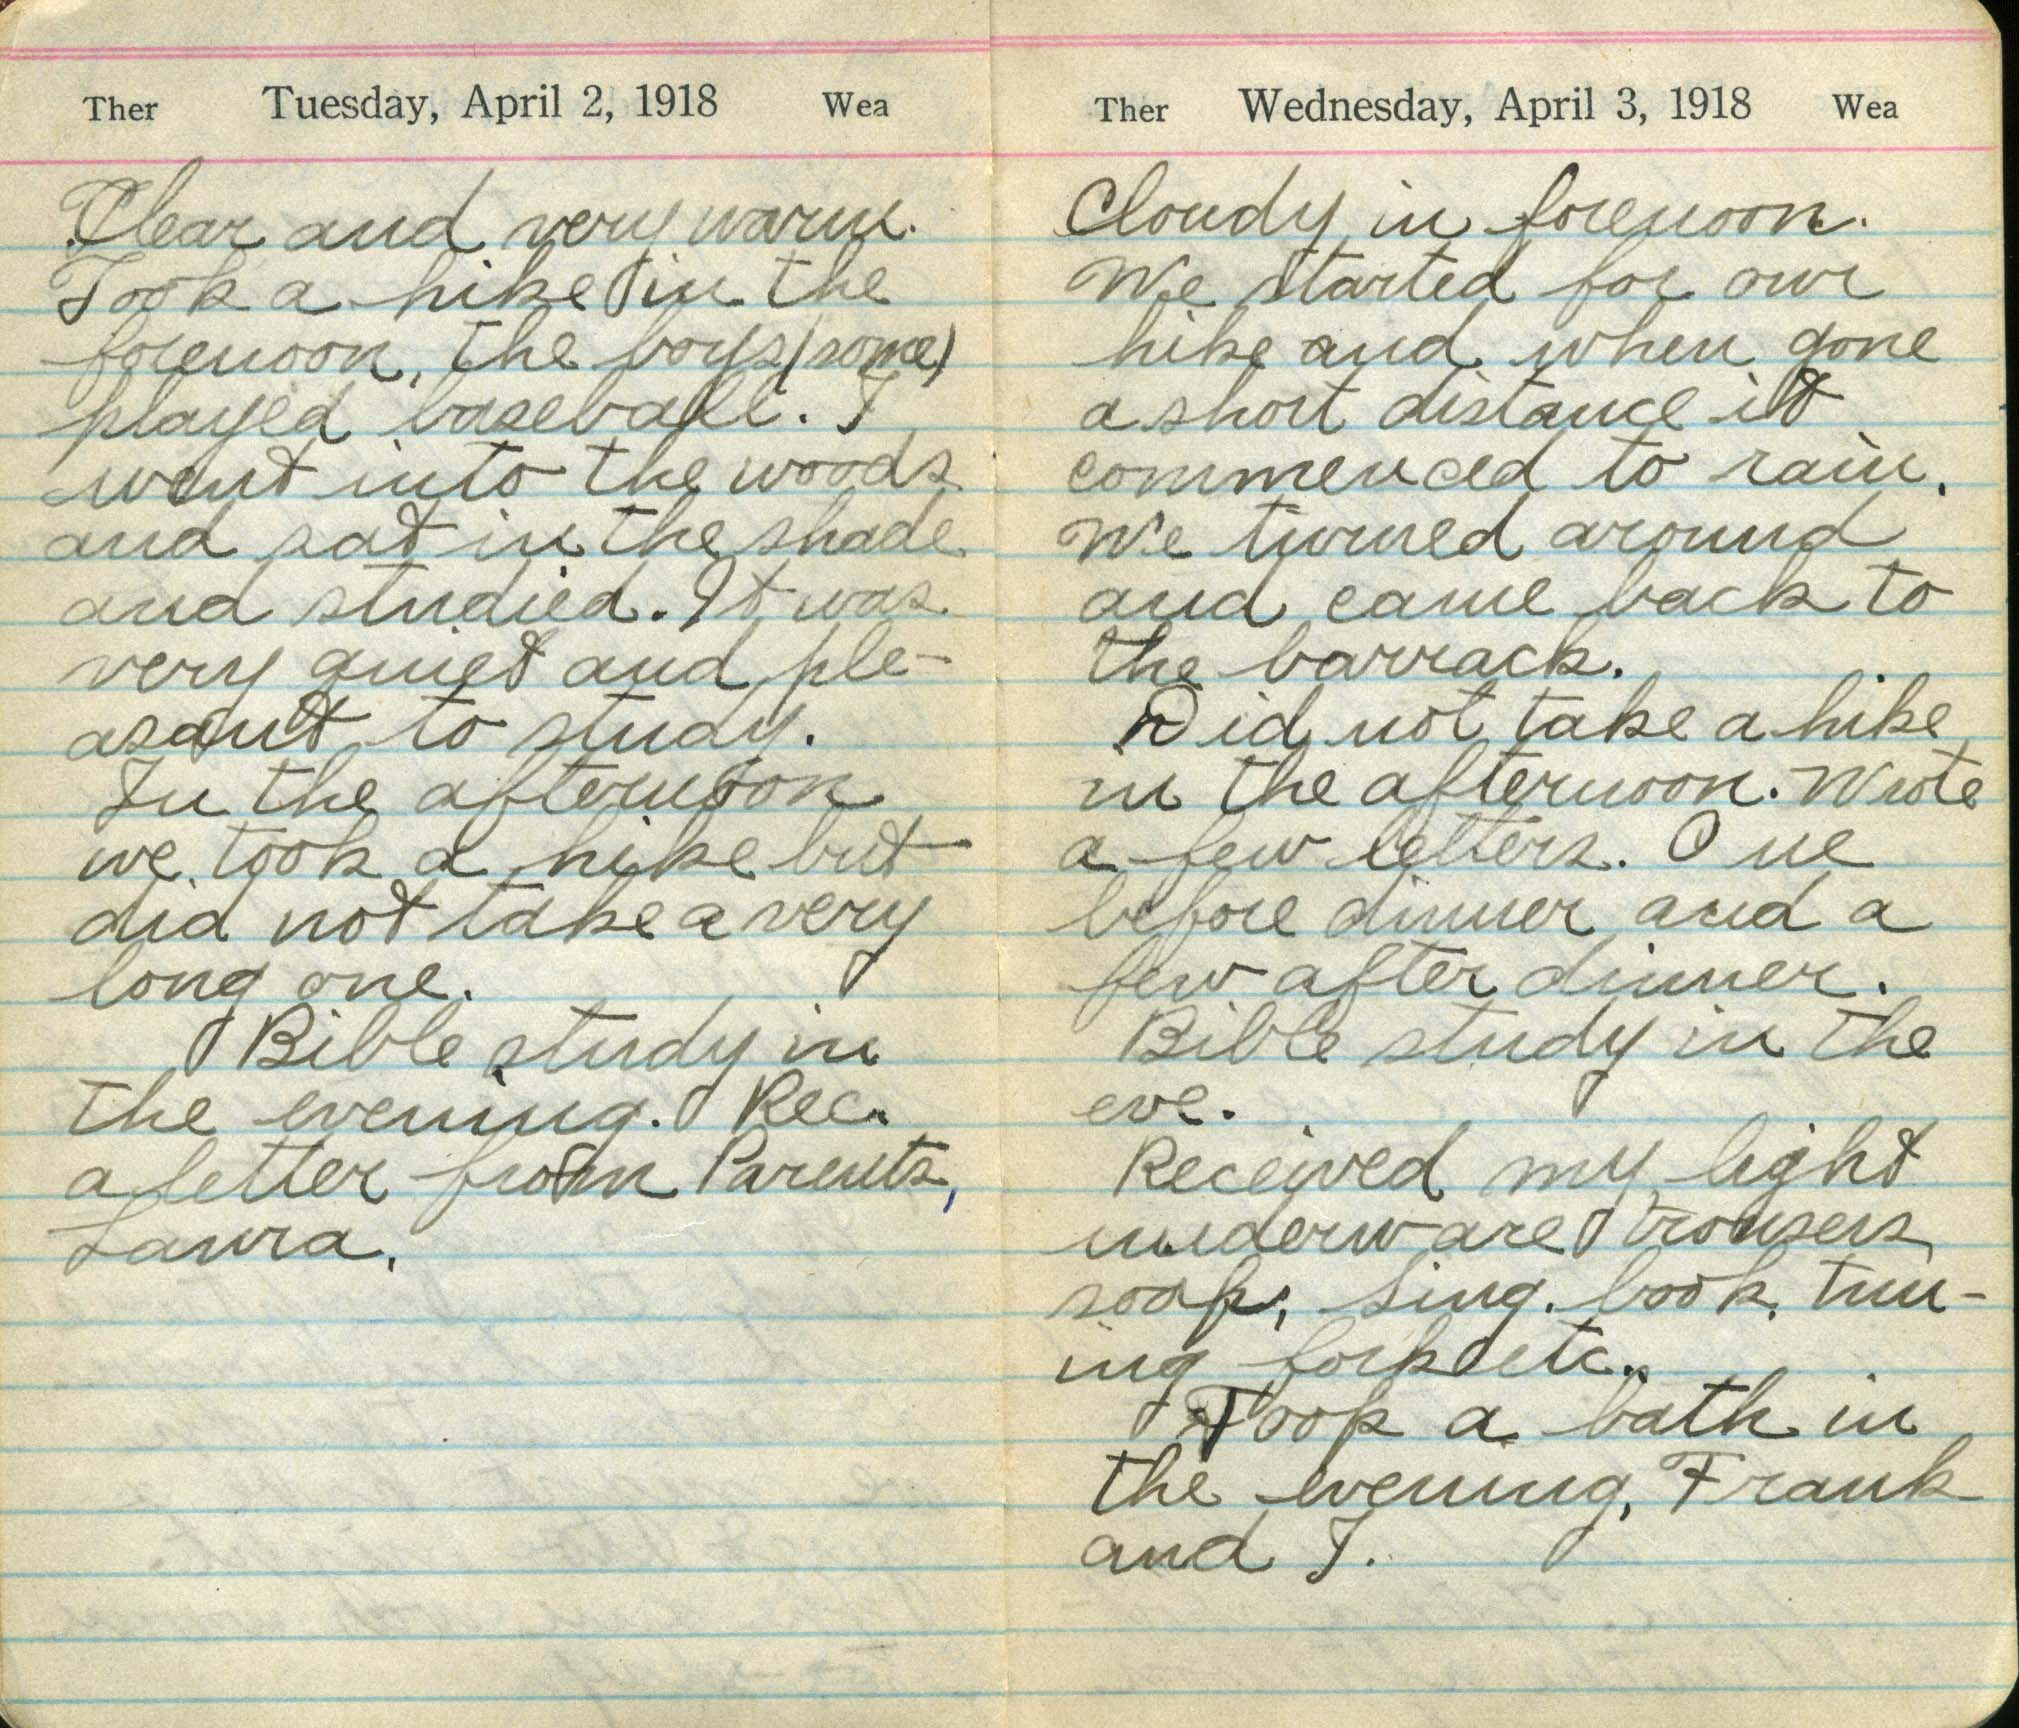 Ther Tuesday, April 2, 1918 Wea
Clear and very warm.
Took a hike in the
forenoon, the boys (some)
played baseball. I
went into the woods
and sat in the shade
and studied. It was
very quiet and ple-
asant to study.
In the afternoon
we took a hike but
did not take a very
long one.
Bible study in
the evening. Rec.
a letter from Parents,
Laura.
Ther Wednesday, April 3, 1918 Wea
Cloudy in forenoon.
We started for our
hike and when gone
a short distance it
commenced to rain.
We turned around
and came back to
the barrack.
Did not take a hike
in the afternoon. Wrote
a few letters. One
before dinner and a
few after dinner.
Bible study in the
eve.
Received my light
underware trousers,
soap, Sing. book, tun-
ing fork etc.
Took a bath in
the evening, Frank
and I.